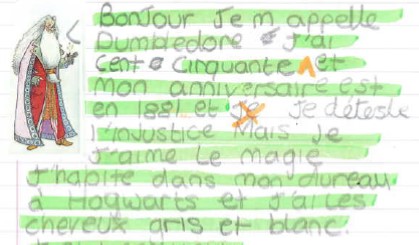 Bonjour Je m appelle
Dumbledore J'ai
cent Cinquante et
mon anniversaire est
en 1881 et je Je déteste
l'injustice Mais Je
J'aime Le magie
J'habite dans mon
à Hogwarts et J'ai les
cheveux gris et blanc.